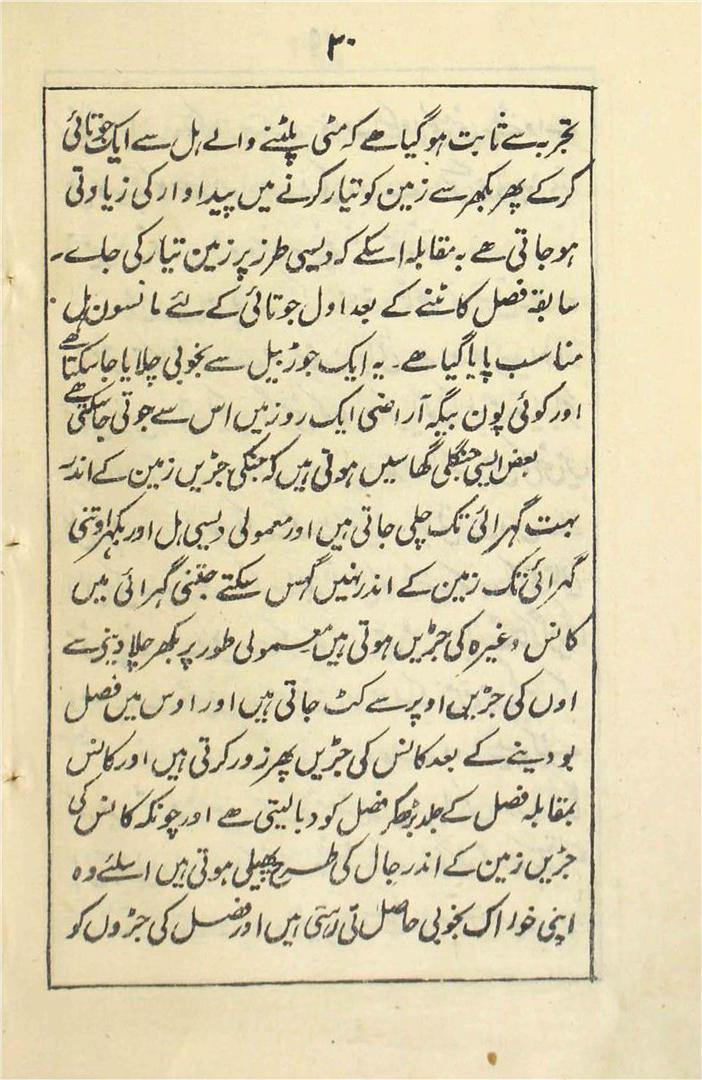 ۳۰
تجربہ سے ثابت ہوگیا ہے کہ مٹی پلٹنے والے ہل سے ایک جوتائی
کرکے پھر بکھر سے زمین کو تیار کرنے میں پیداوار کی زیادتی
ہو جاتی ہے بہ مقابلہ اسکے کہ دیسی طرز پر زمین تیار کی جاے۔
سابقہ فصل کاٹنے کے بعد اول جوتائی کے لئے مانسون ہل
مناسب پایا گیا ہے۔ یہ ایک جوڑ بیل سے بخوبی چلایا جاسکتا ہے
اور کوئی پون بیگہ آراضی ایک روز میں اس سے جوتی جاسکتی ہے
بعض ایسی جنگلی گھاسیں ہوتی ہیں کہ جنکی جڑیں زمین کے اندر
بہت گہرائی تک چلی جاتی ہیں اور معمولی دیسی ہل اور بکھر اوتنی
گہرائی تک زمین کے اندر نہیں گہس سکتے جتنی گہرائی میں
کانس وغیرہ کی جڑیں ہوتی ہیں معمولی طور پر بکھر چلا دینے سے
اوں کی جڑیں اوپر سے کٹ جاتی ہیں اور اوس میں فصل
بو دینے کے بعد کانس کی جڑیں پھر زور کرتی ہیں اور کانس
بمقابلہ فصل کے جلد بڑھکر فصل کو دبا لیتی ہے اور چونکہ کانس کی
جڑیں زمین کے اندر جال کی طرح پھیلی ہوتی ہیں اسلئے وہ
اپنی خوراک بخوبی حاصل تی رہتی ہیں اور فصل کی جڑوں کو